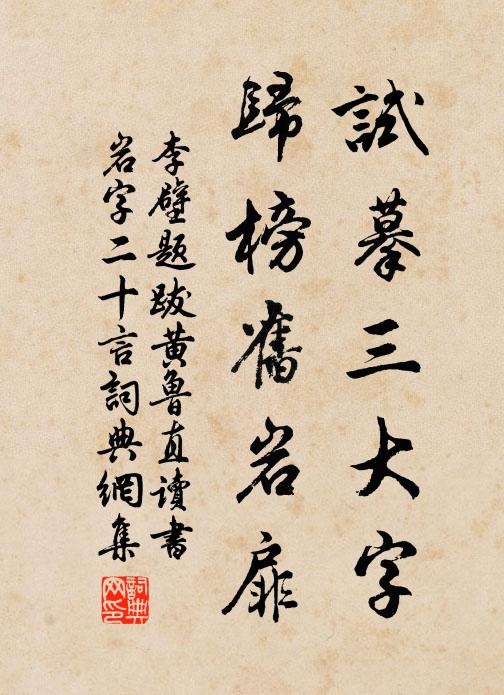 試摹三大字
歸榜舊岩扉
李壁題跋黃魯直讀書
岩字二十言詞典網集
詞典網印